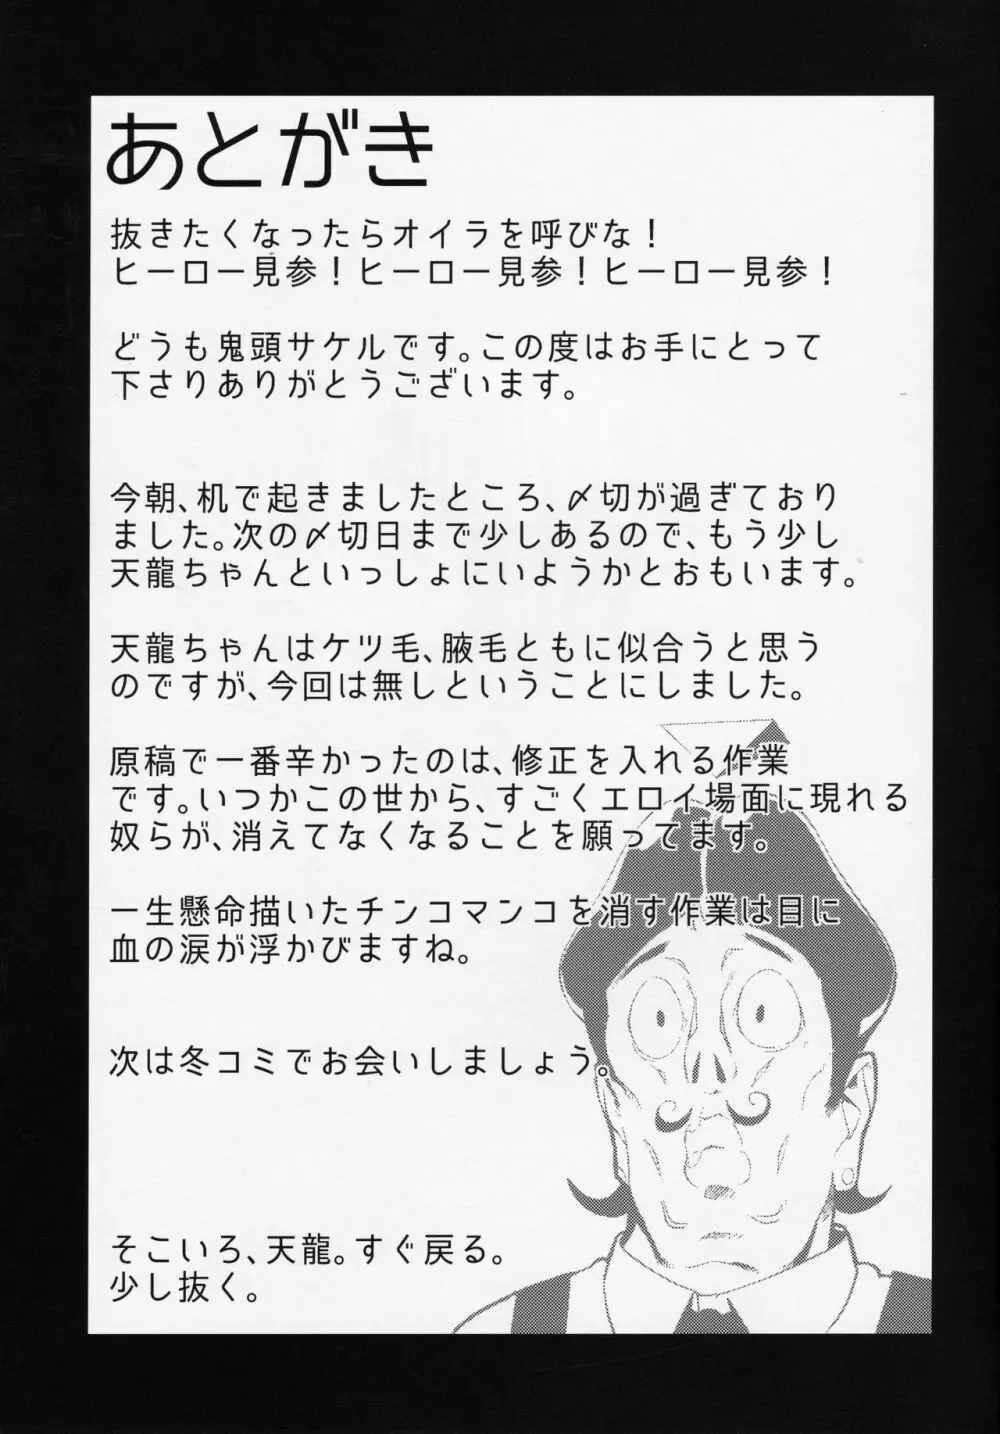 あとがき
抜きたくなったらオイラを呼びな！
ヒーロー見参！ヒーロー見参！ヒーロー見参！
どうも鬼頭サケルです。この度はお手にとって
下さりありがとうございます。
今朝、机で起きましたところ、〆切が過ぎており
ました。次の〆切日まで少しあるので、もう少し
天龍ちゃんといっしょにいようかとおもいます。
天龍ちゃんはケツ毛、腋毛ともに似合うと思う
のですが、今回は無しということにしました。
原稿で一番辛かったのは、修正を入れる作業
です。いつかこの世から、すごくエロイ場面に現れる
奴らが、消えてなくなることを願ってます。
一生懸命描いたチンコマンコを消す作業は目に
血の涙が浮かびますね。
次は冬コミでお会いしましょう。
そこいろ、天龍。すぐ戻る。
少し抜く。